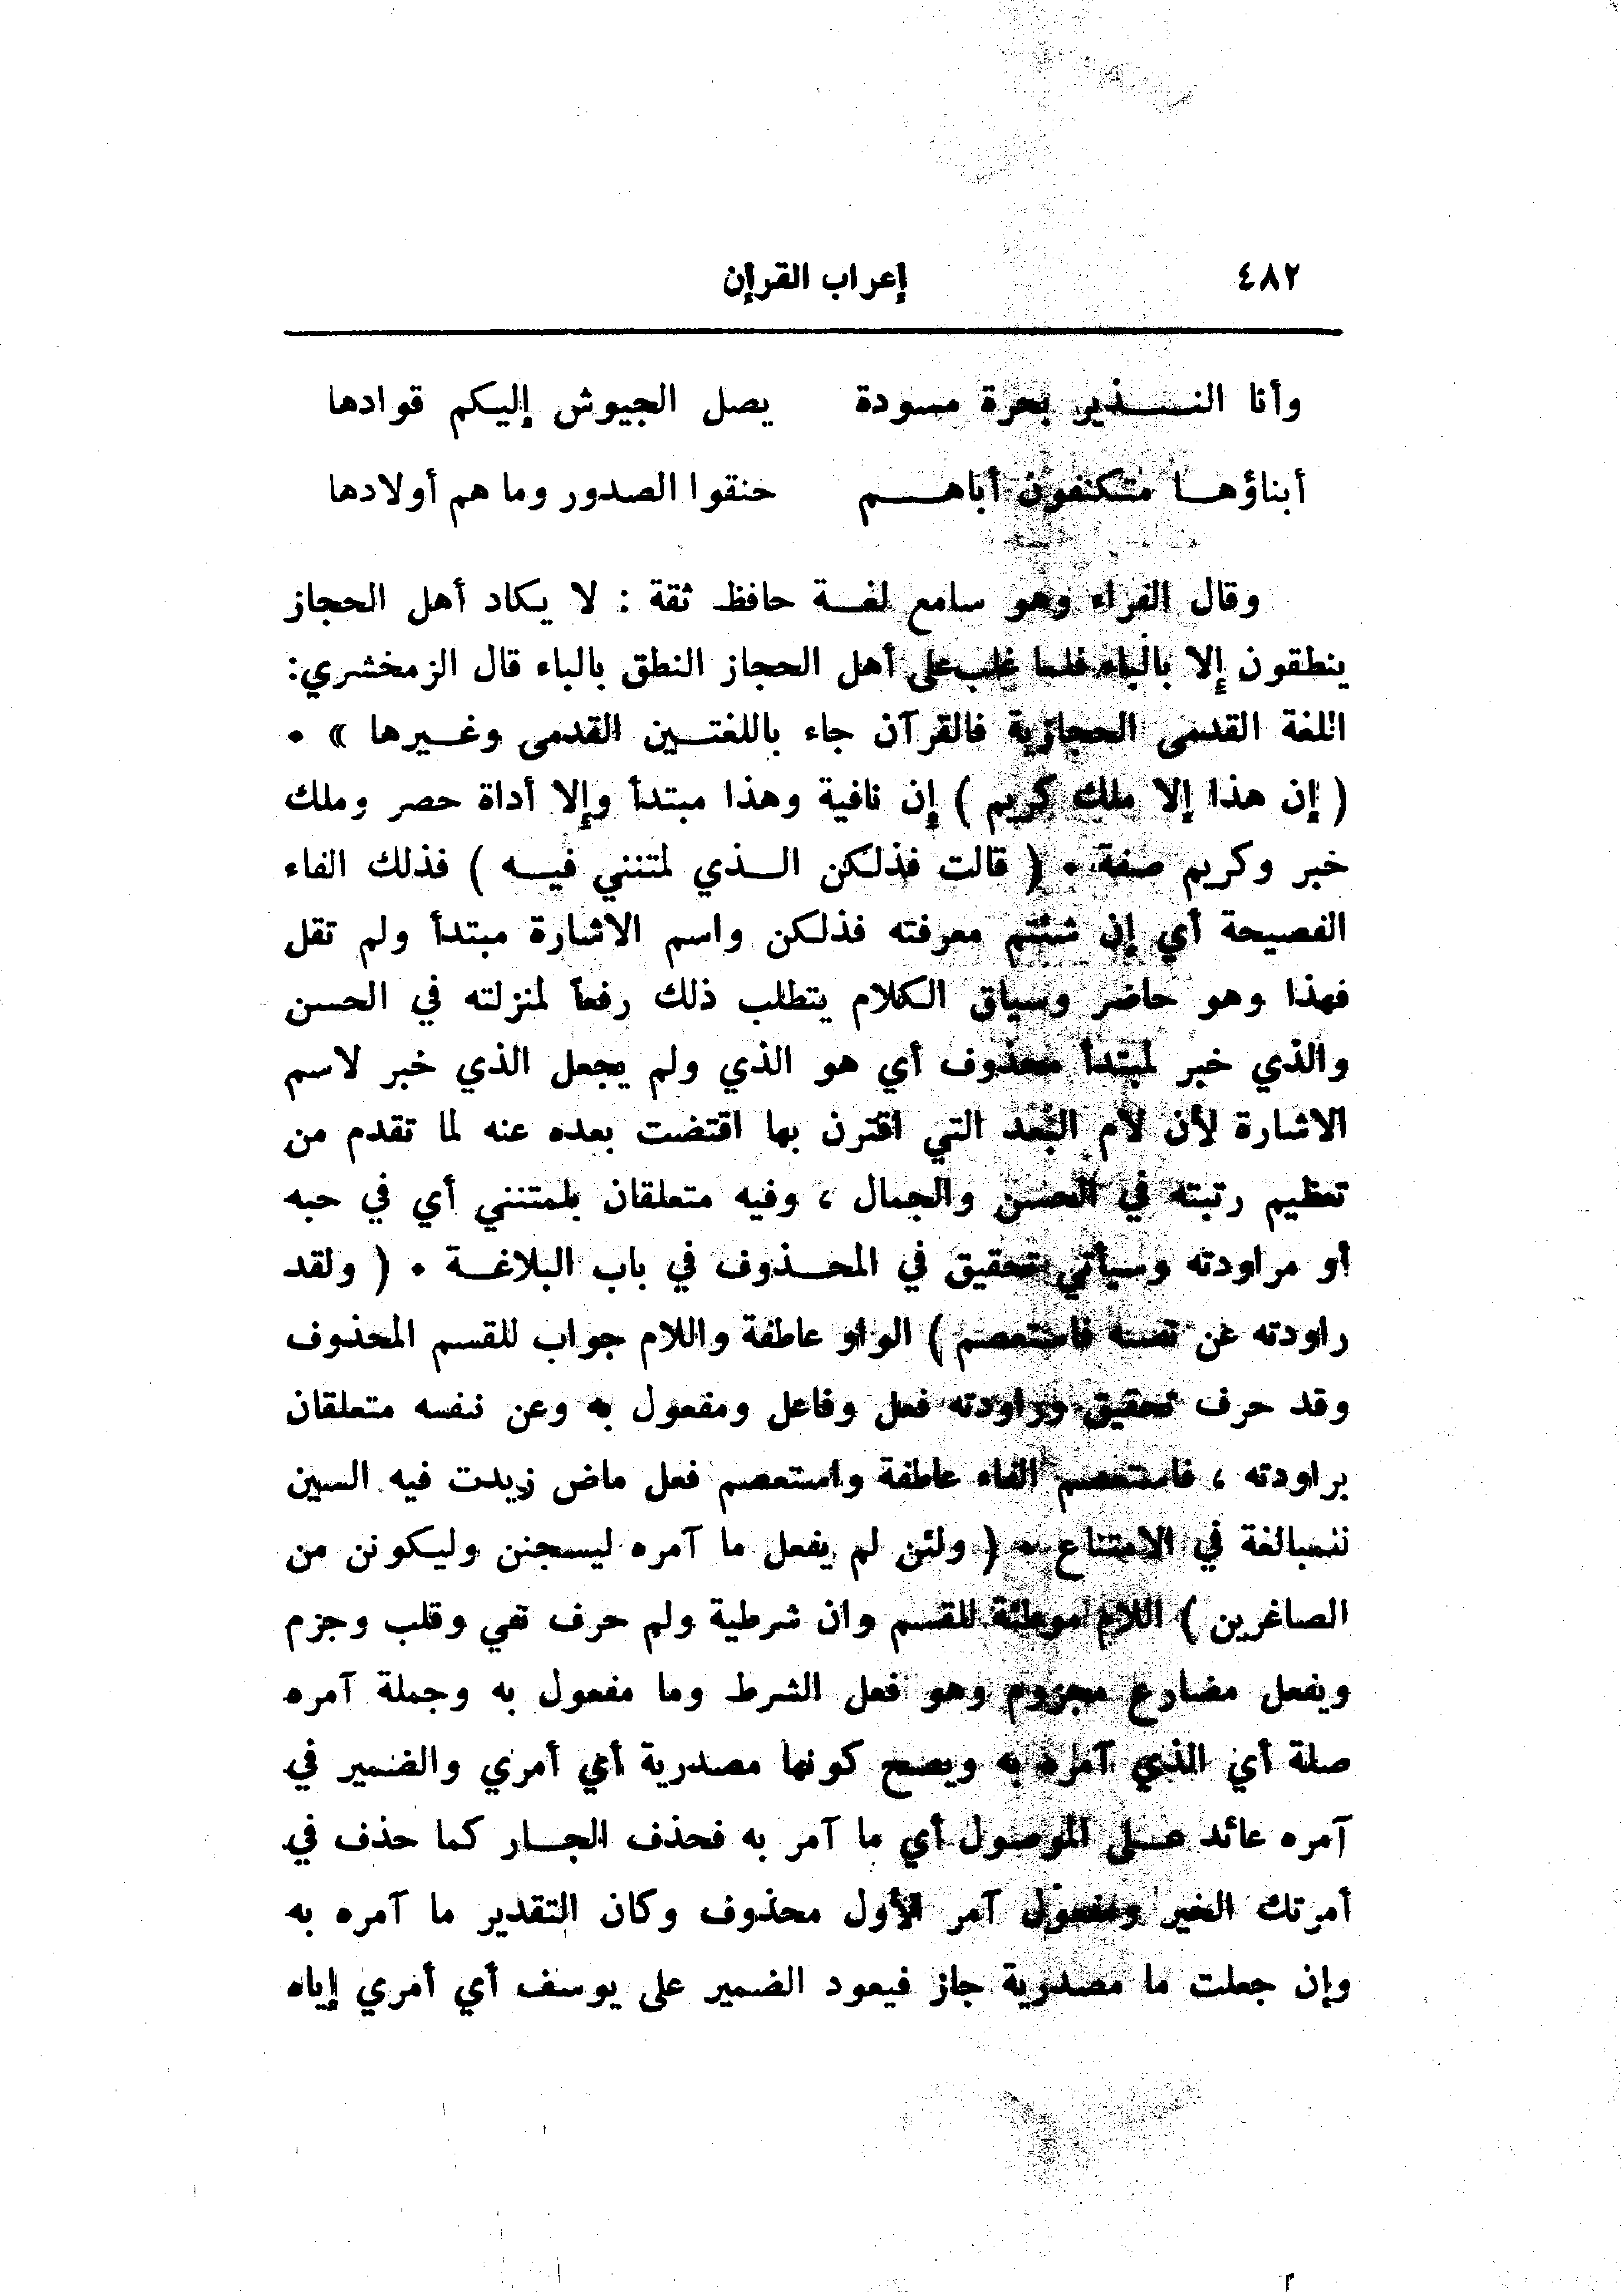 ٤٨٢ إعراب القرآن
وأنا النــــذير بحرة مسودة يصل الجيوش إليكم قوادها
أبناؤهــا متكنفون أباهــــم حنقوا الصدور وما هم أولادها
وقال الفراء وهو سامع لغــة حافظ ثقة : لا يكاد أهل الحجاز
ينطقون إلا بالباء فلما غلب على أهل الحجاز النطق بالباء قال الزمخشري:
اللغة القدمى الحجازية فالقرآن جاء باللغتــين القدمى وغــيرها » .
( إن هذا إلا ملك كريم ) إن نافية وهذا مبتدأ وإلا أداة حصر وملك
خبر وكريم صفة . ( قالت فذلكن الــذي لمتنني فيــه ) فذلك الفاء
الفصيحة أي إن شئتم معرفته فذلكن واسم الاشارة مبتدأ ولم تقل
فهذا وهو حاضر وسياق الكلام يتطلب ذلك رفعاً لمنزلته في الحسن
والذي خبر لمبتدأ محذوف أي هو الذي ولم يجعل الذي خبر لاسم
الاشارة لأن لام البُعد التي اقترن بها اقتضت بعده عنه لما تقدم من
تعظيم رتبته في الحسن والجمال ، وفيه متعلقان بلمتنني أي في حبه
أو مراودته وسيأتي تحقيق في المحــذوف في باب البلاغــة . ( ولقد
راودته عن نفسه فاستعصم ) الواو عاطفة واللام جواب للقسم المحذوف
وقد حرف تحقيق وراودته فعل وفاعل ومفعول به وعن نفسه متعلقان
براودته ، فاستعصم الفاء عاطفة واستعصم فعل ماض زيدت فيه السين
للمبالغة في الامتناع . ( ولئن لم يفعل ما آمره ليسجنن وليكونن من
الصاغرين ) اللام موطئة للقسم وان شرطية ولم حرف نفي وقلب وجزم
ويفعل مضارع مجزوم وهو فعل الشرط وما مفعول به وجملة آمره
صلة أي الذي آمره به ويصح كونها مصدرية أي أمري والضمير في
آمره عائد عــلى الموصول أي ما آمر به فحذف الجــار كما حذف في
أمرتك الخير ومفعول آمر الأول محذوف وكان التقدير ما آمره به
وإن جعلت ما مصدرية جاز فيعود الضمير على يوسف أي أمري إياه